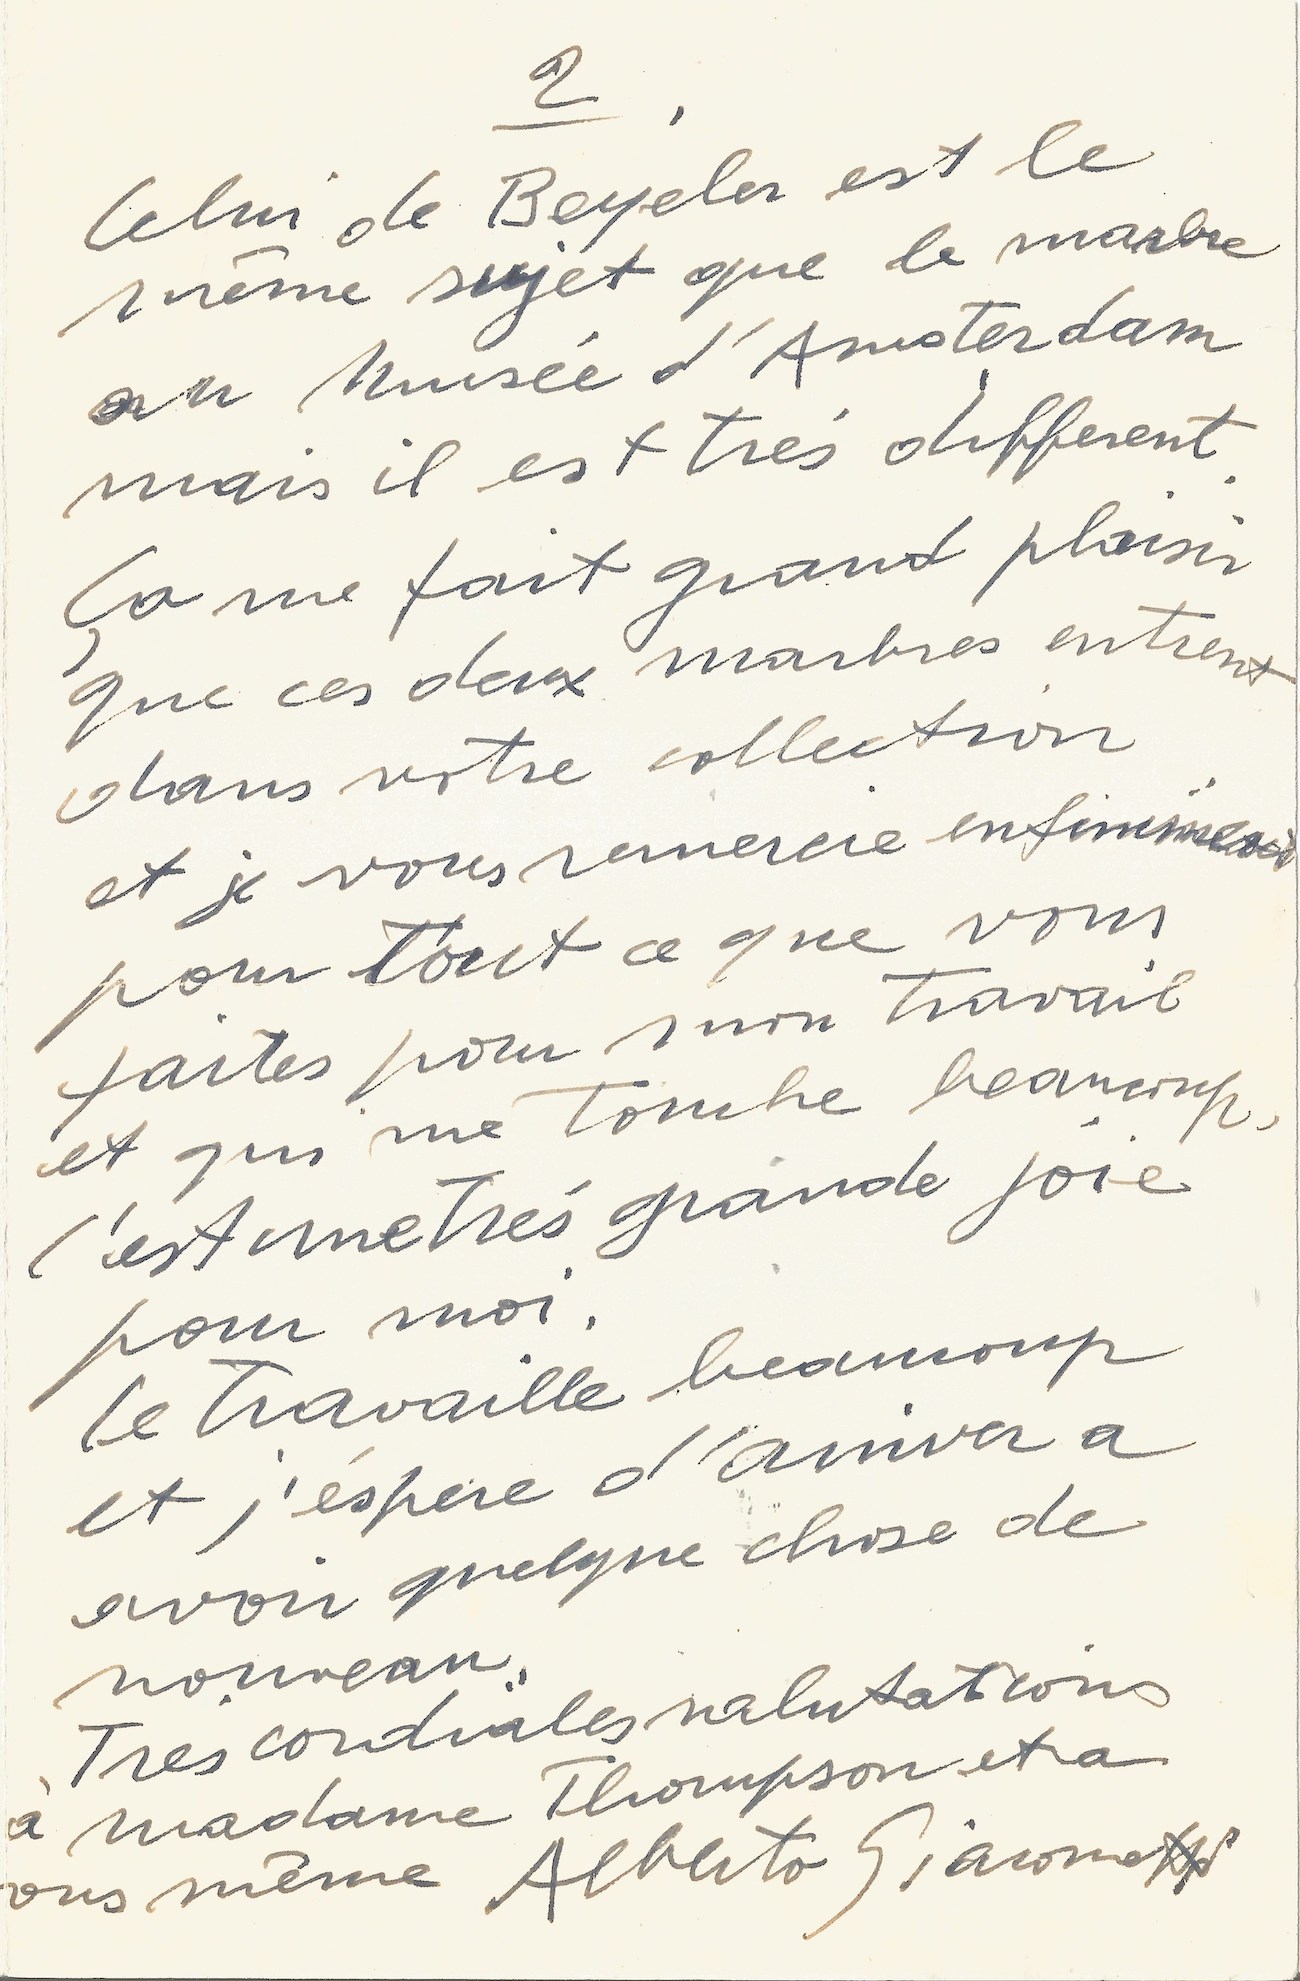 2.
Celui de Beyeler est le
même sujet que le marbre
au Musée d'Amsterdam
mais il est trés different.
Ça me fait grand plaisir
que ces deux marbres entrent
dans votre collection
et je vous remercie
pour tout ce que vous
faites pour mon travail
et qui me touche beaucoup,
c'est une trés grande joie
pour moi.
Je travaille beaucoup
et j'éspere d'arriver a
avoir quelque chose de
nouveau.
Tres cordiales salutations
à madame Thompson et a
vous même Alberto Giacometti